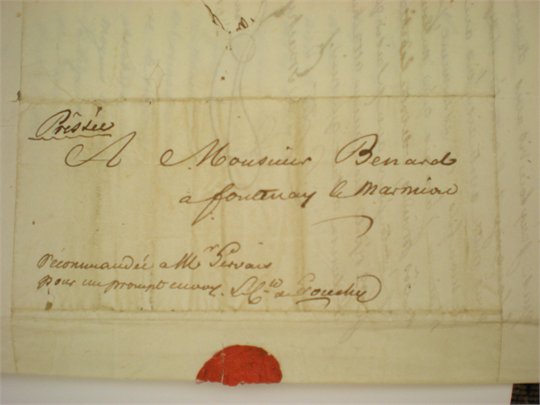 Préssée
A Monsieur Benard
a fontenay le marmion
récommandée a Mr Gervais
pour un prompt envoy. Le Cte de Grouchy